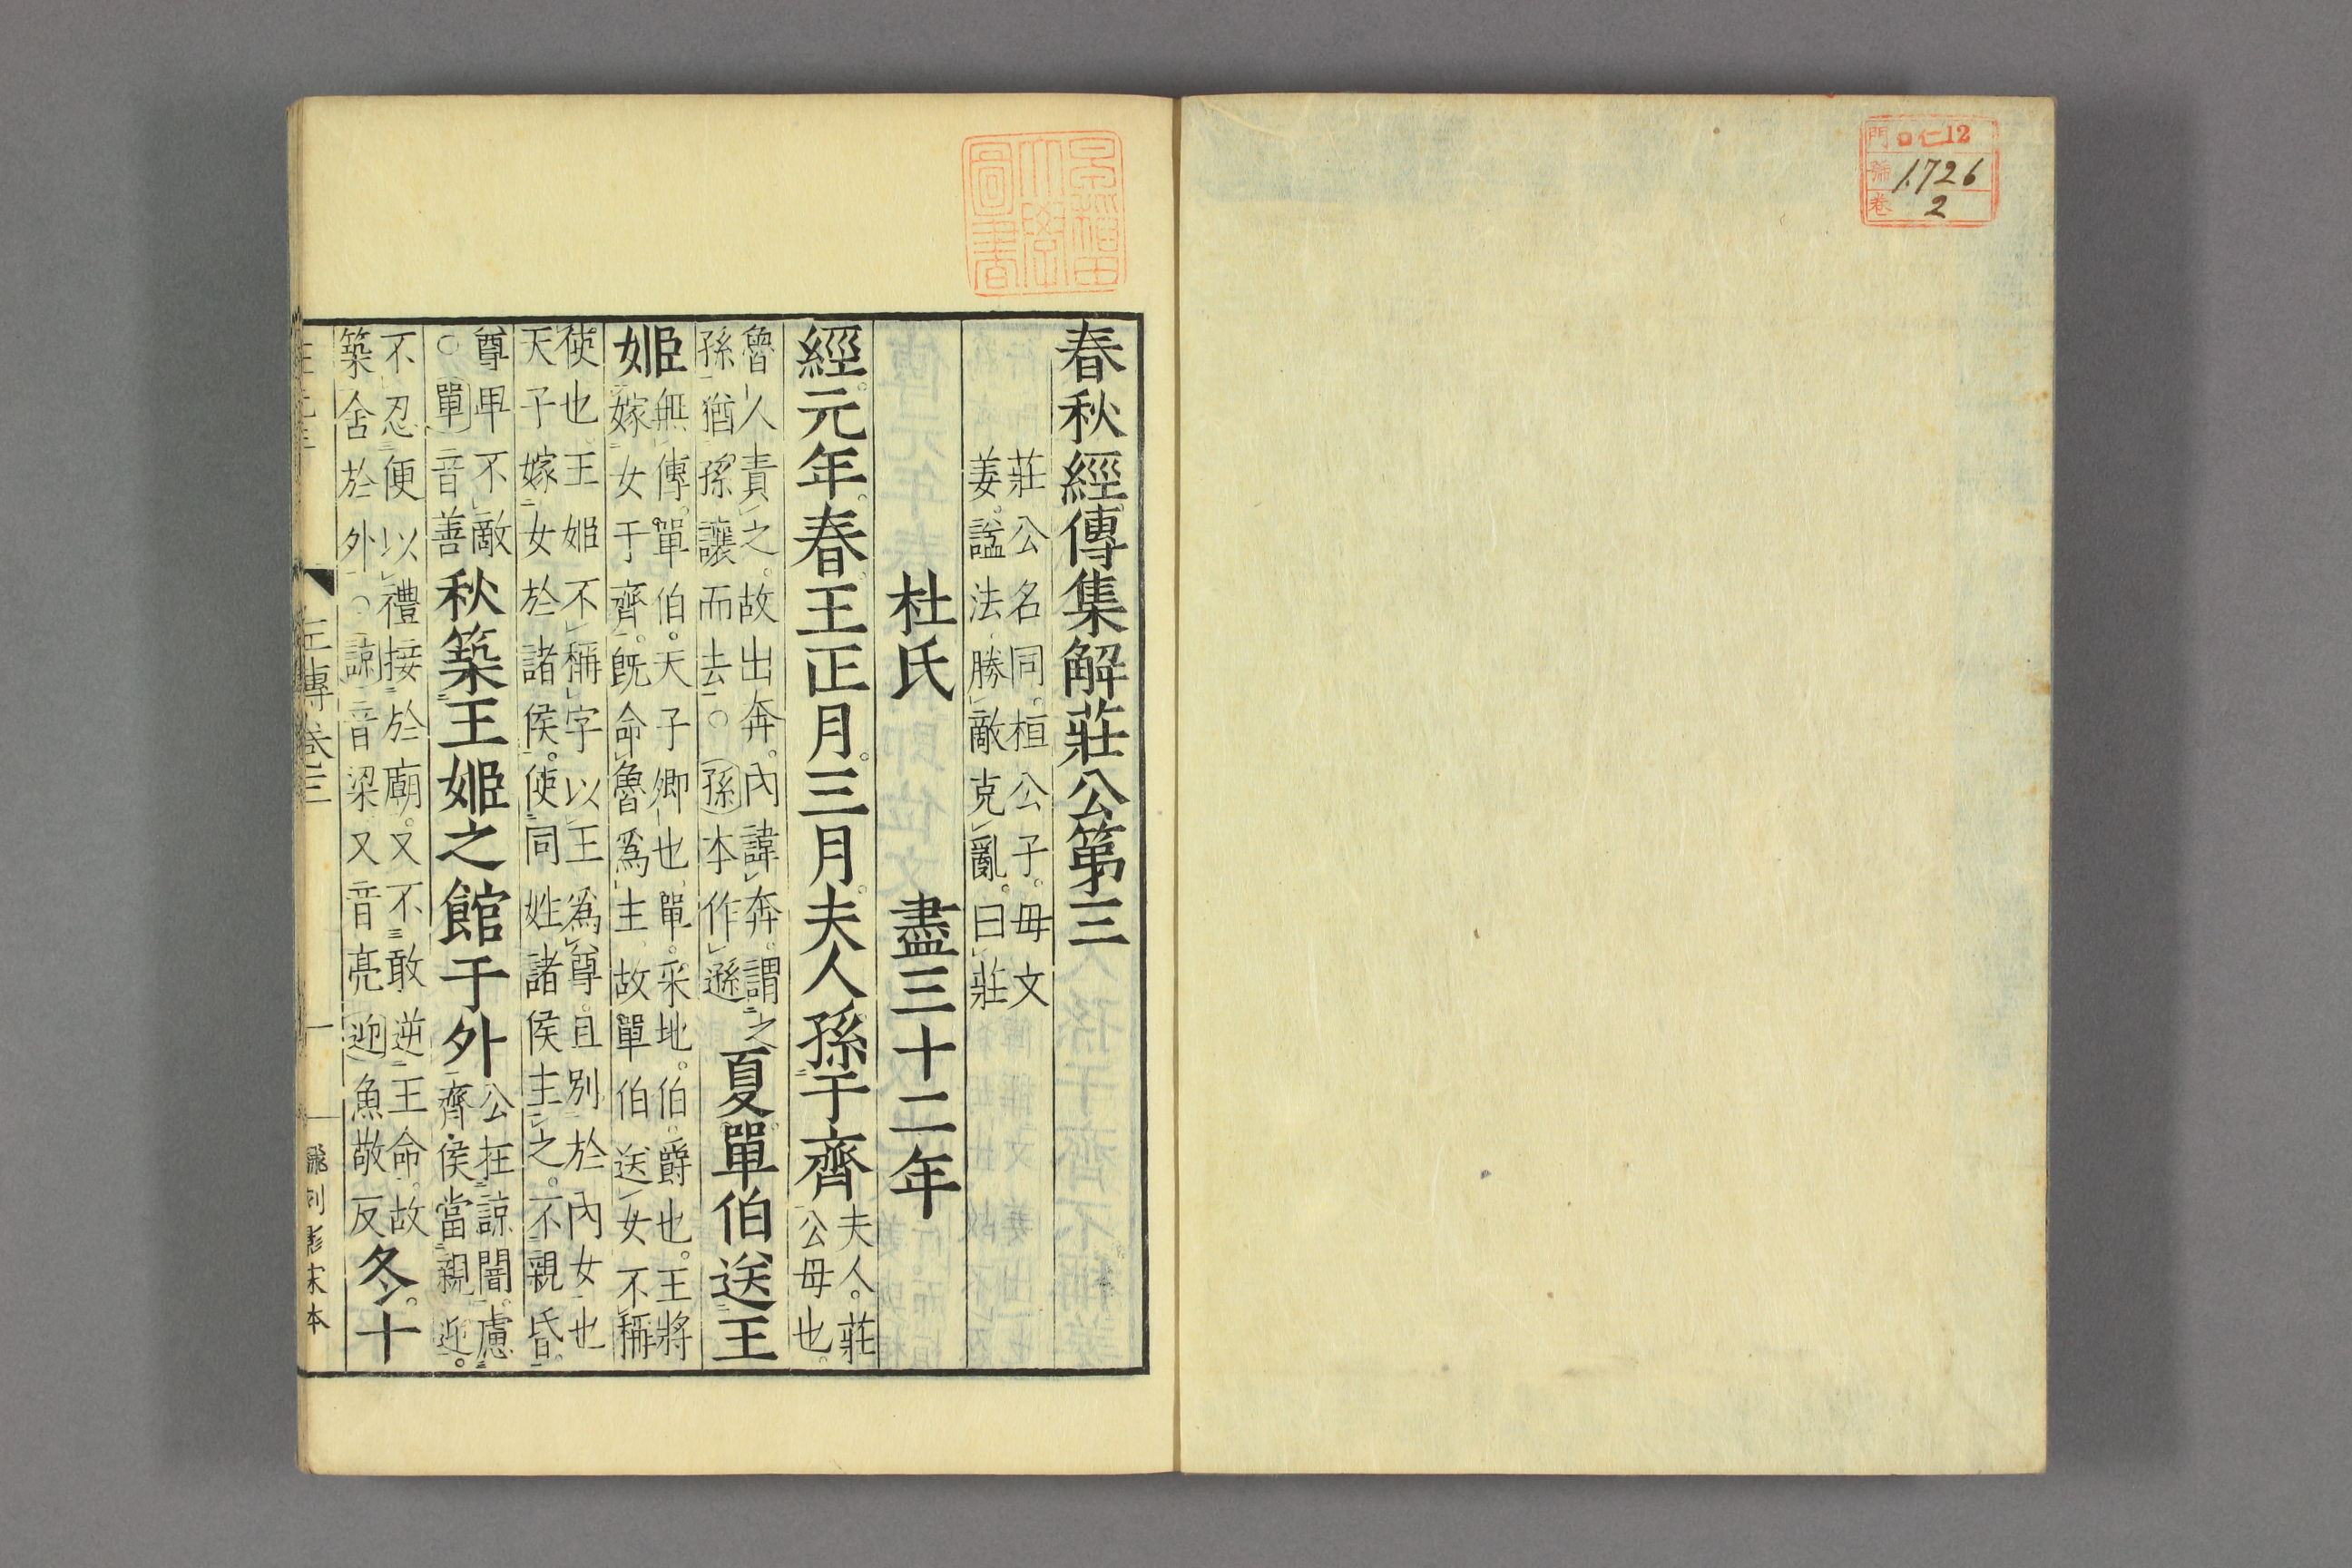 門 ロ仁12
號 1726
卷 2
早稻田大學圖書
春秋經傳集解莊公第三
莊公名同。桓公子。母文
姜。諡法勝敵克亂。曰莊
杜氏 盡三十二年
經。元年。春。王正月。三月。夫人孫于齊
夫人。莊
公母也。
魯人責之。故出奔。內諱奔。謂之
孫猶孫讓而去○孫本作遜
夏單伯送王
姬
無傳。單伯。天子卿也。單。采地。伯。爵也。王將
嫁女于齊。既命魯爲主故單伯送女不稱
使也。王姬不稱字以王爲尊。且別於內女也
天子嫁女於諸侯。使同姓諸侯主之。不親昏。
尊卑不敵
○單音善
秋築王姬之館于外
公在諒闇。慮
齊侯當親迎。
不忍便以禮接於廟。又不敢逆王命。故
築舍於外○諒音梁又音亮迎魚敬反
冬。十
左傳卷三
一